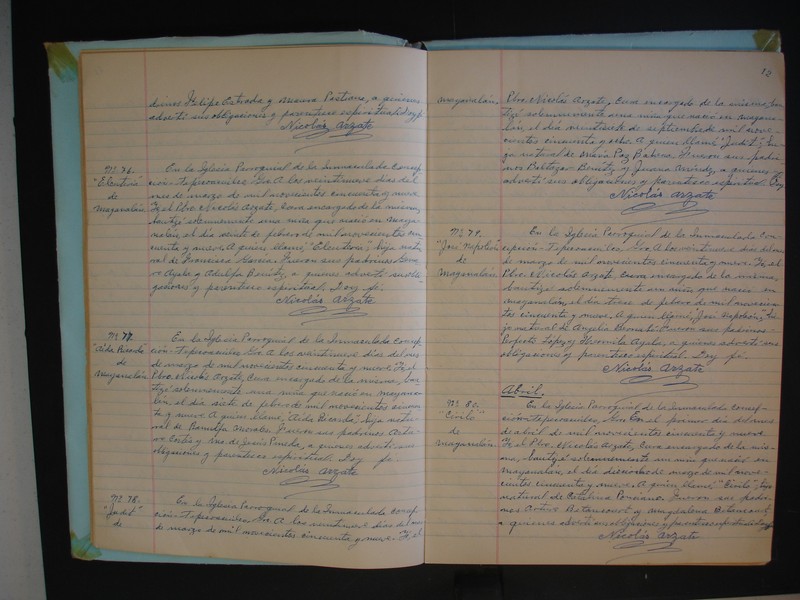 dinos Felipe Estrada y Pastrana, a quienes
advertí sus obligaciones y parentesco espiritual. Doy fe
Nicolás Arzate
Nº 76.
de
Mayanalán
En la Iglesia Parroquial de la Inmaculada Concep-
ción - Tepecoacuilco, Gro. A los veintinueve días del
mes de marzo de mil novecientos cincuenta y nueve.
Yo el Pbro. Nicolás Arzate, Cura encargado de la misma,
bauticé solemnemente una niña que nació en Maya-
nalán, el día veinte de febrero de mil novecientos cin-
cuenta y nueve. A quien llamé hija natu-
ral de Francisca García. Fueron sus padrinos
Ayala y Adelifa Benítez, a quienes advertí sus obli-
gaciones y parentesco espiritual. Doy fe.
Nicolás Arzate
Nº 77.
"Aida Ricarda"
de
Mayanalán
En la Iglesia Parroquial de la Inmaculada Concep-
ción - Tepecoacuilco, Gro. A los veintinueve días del mes
de marzo de mil novecientos cincuenta y nueve. Yo el
Pbro. Nicolás Arzate, Cura encargado de la misma, bau-
ticé solemnemente una niña que nació en Mayana-
lán, el día siete de febrero de mil novecientos cincuen-
ta y nueve. A quien llamé, "Aida Ricarda", hija natu-
ral de Morales. Fueron sus padrinos Artu-
ro Cortés y Ma. de Jesús Pineda, a quienes advertí sus
obligaciones y parentesco espiritual. Doy fe.
Nicolás Arzate
Nº 78.
"Judit"
de
En la Iglesia Parroquial de la Inmaculada Concep-
ción - Tepecoacuilco, Gro. A los veintinueve días del mes
de marzo de mil novecientos cincuenta y nueve. Yo, el
12
Mayanalán.
Pbro. Nicolás Arzate, Cura encargado de la misma, bau-
ticé solemnemente una niña que nació en Mayana-
lán, el día veintisiete de septiembre de mil nove-
cientos cincuenta y ocho. A quien llamé "Judit", hi-
ja natural de María Paz Fueron sus padri-
nos Baltazar Benítez y Juana a quienes
advertí sus obligaciones y parentesco espiritual. Doy
Nicolás Arzate
Nº 79.
"José Napoleón"
de
Mayanalán
En la Iglesia Parroquial de la Inmaculada Con-
cepción - Tepecoacuilco, Gro. A los veintinueve días del mes
de marzo de mil novecientos cincuenta y nueve. Yo, el
Pbro. Nicolás Arzate, Cura encargado de la misma,
bauticé solemnemente un niño que nació en
Mayanalán, el día trece de febrero de mil novecien-
tos cincuenta y nueve. A quien llamé, José Napoleón, hi-
jo natural de Angelia Fueron sus padrinos
López y Ayala, a quienes advertí sus
obligaciones y parentesco espiritual. Doy fe.
Nicolás Arzate
Abril.
Nº 80.
"Cirilo"
de
Mayanalán
En la Iglesia Parroquial de la Inmaculada Concep-
ción - Tepecoacuilco, Gro. En el primer día del mes
de abril de mil novecientos cincuenta y nueve
Yo el Pbro. Nicolás Arzate, Cura encargado de la mis-
ma, bauticé solemnemente un niño que nació en
Mayanalán, el día dieciocho de marzo de mil nove-
cientos cincuenta y nueve. A quien llamé: "Cirilo", hijo
natural de Catalina Fueron sus padri-
nos Arturo Betancourt y Magdalena Betancourt,
a quienes advertí sus obligaciones y parentesco espiritual. Doy fe
Nicolás Arzate